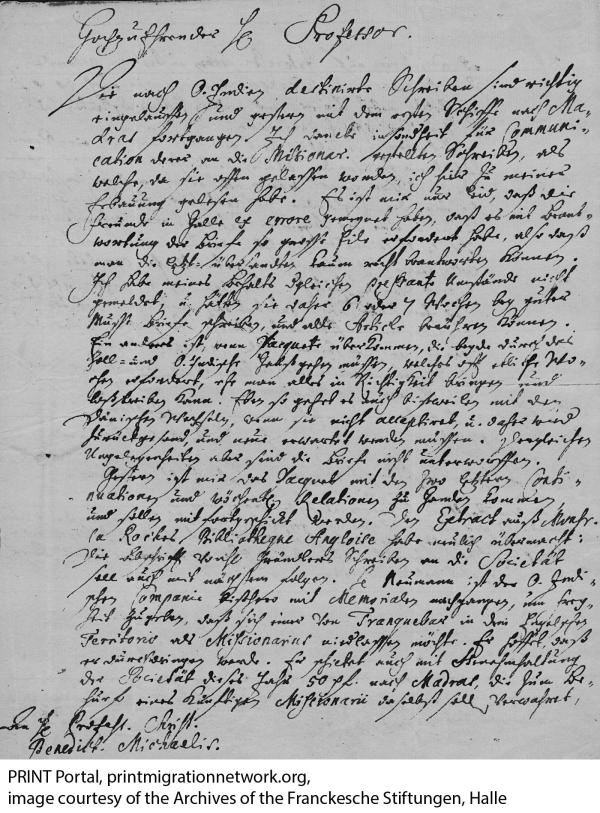 Hochzuehrender H. Professor.
Die nach O. Indien destinirte Schreiben sind richtig
eingelauffen, und gestern mit dem ersten Schiffe nach Ma-
dras fortgangen. Ich dancke insonderheit für Communi-
cation derer an die Missionar. gestellten Schreiben, als
welche, da sie offen gelassen worden, ich hier zu meiner
Erbauung gelesen habe. Es ist mir nur leid, daß die
Freunde in Halle ex errore gemeynet haben, daß es mit Beant-
wortung der Briefe so grosse Eile erfordert habe, also daß
man die letzt-übersandten kaum recht beantworten können.
Ich habe meines Behalts dergleichen Umstände nicht
gemeldet; u. hätten sie daher 6 oder 7 Wochen bey guter
Musse Briefe schreiben, und alle Articul berühren können.
Ein anders ist, wenn Pacquete überkommen, die beyde durch das
Zoll- und O. Indische Hauß gehen müssen, welches offt etliche Wo-
chen erfordert, ehe man alles in Richtigkeit bringen und
kann. Eben so gehet es auch bisweilen mit den
Dänischen Wechseln, wenn sie nicht acceptiret, u. daher wied
zurückgesand und neue erwartet werden müssen. Dergleichen
Ungelegenheiten aber sind die Briefe nicht unterworffen.
Gestern ist mir das Pacquet mit den zwo letztern Conti-
nuationen und Relationen zu Handen kommen
und sollen mit fortgeschickt werden. Den Extract auß Monsr.
la Roches Bibliotheque Angloise habe neulich übermacht:
Die Abschrifft Gründlers Schreiben an die Societät
soll auch mit nächstem folgen. H. Neumann ist der O. Indi-
schen Companie mit Memorialen nachgangen, um Frey-
heit zu geben, daß sich einer von Tranquebar in dem Englischen
Territorio als Missionarius niedlassen möchte. Er hoffet, daß
er durchdringen werde. Er schicket auch mit Genehmhaltung
der Societät dieses Jahr 50 Pf. nach Madras, die zum Be-
huf eines künfftigen Missionarii daselbst soll verwahret,
An H. Professt. Christ.
Benedict. Michaelis.
PRINT Portal, printmigrationnetwork.org,
image courtesy of the Archives of the Franckesche Stiftungen, Halle